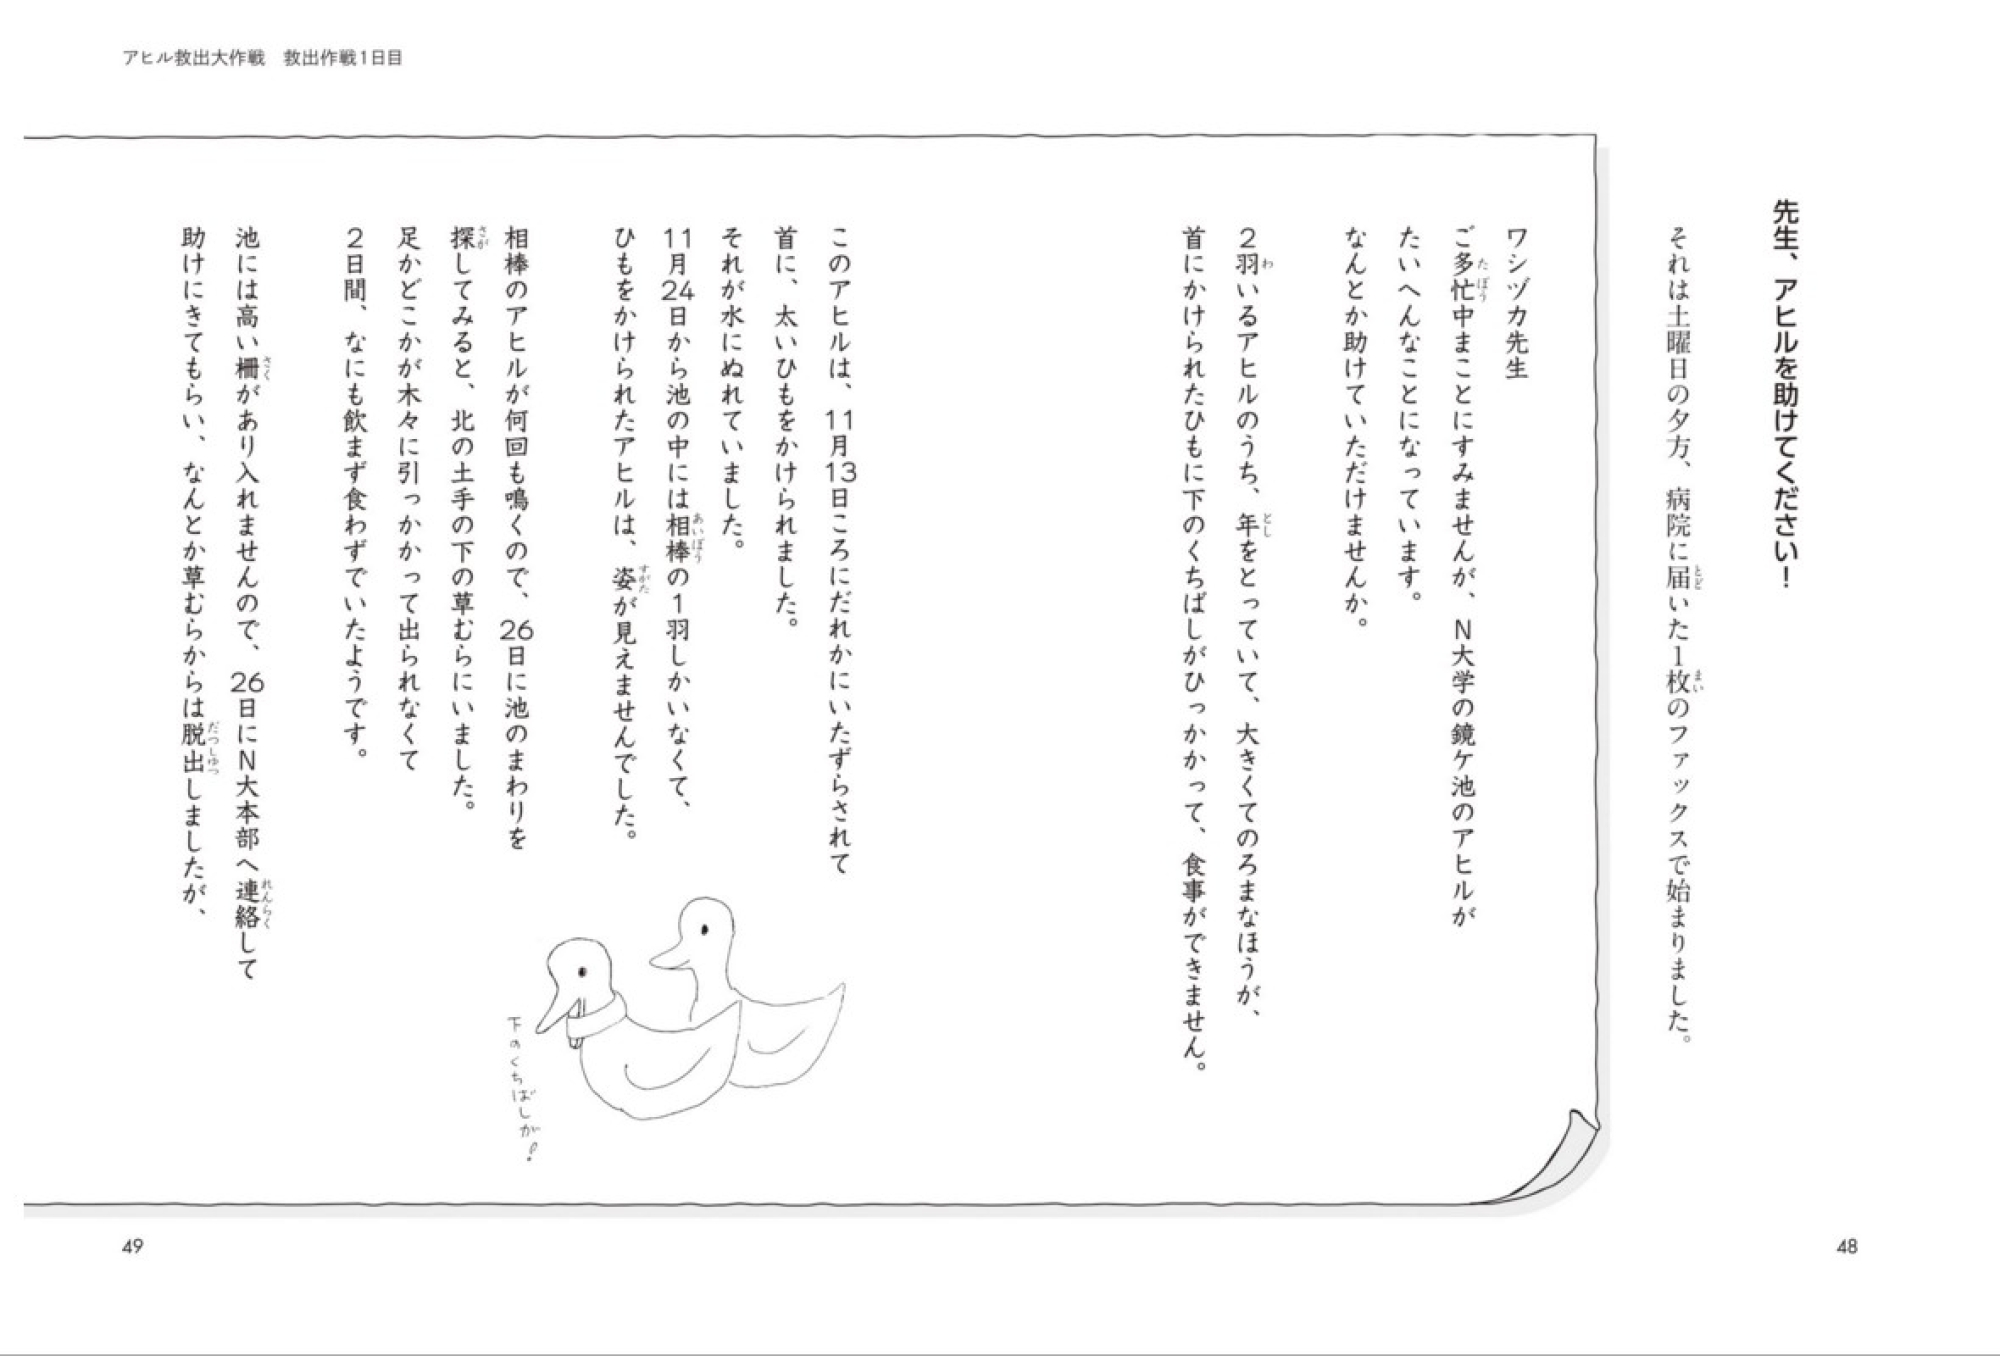 アヒル救出大作戦　救出作戦1日目
先生、アヒルを助けてください！
それは土曜日の夕方、病院に届いた1枚のファックスで始まりました。
ワシヅカ先生
ご多忙中まことにすみませんが、N大学の鏡ケ池のアヒルが
たいへんなことになっています。
なんとか助けていただけませんか。
2羽いるアヒルのうち、年をとっていて、大きくてのろまなほうが、
首にかけられたひもに下のくちばしがひっかかって、食事ができません。
このアヒルは、11月13日ころにだれかにいたずらされて
首に、太いひもをかけられました。
それが水にぬれていました。
11月24日から池の中には相棒の1羽しかいなくて、
ひもをかけられたアヒルは、姿が見えませんでした。
相棒のアヒルが何回も鳴くので、26日に池のまわりを
探してみると、北の土手の下の草むらにいました。
足かどこかが木々に引っかかって出られなくて
2日間、なにも飲まず食わずでいたようです。
池には高い柵があり入れませんので、26日にN大本部へ連絡して
助けにきてもらい、なんとか草むらからは脱出しましたが、
下のくちばしが！
49
48